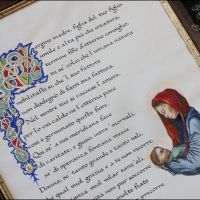 Vergine madre, figlia del tuo figlio,
umile e alta più che creatura,
termine fisso d'etterno consiglio,
tu se' colei che l'umana natura
nobilitasti sì, che 'l suo fattore
non disdegnò di farsi sua fattura.
Nel ventre tuo si raccese l'amore
per lo cui caldo ne l'etterna pace
così è germinato questo fiore.
Qui se' a noi meridiana face
di caritate, e giuso, intra i mortali,
se' di speranza fontana vivace.
Donna, se' tanto grande e tanto vali,
che qual vuol grazia e a te non ricorre,
sua disianza vuol volar sanz'ali.
non pur soccorre
molte fiate
precorre.